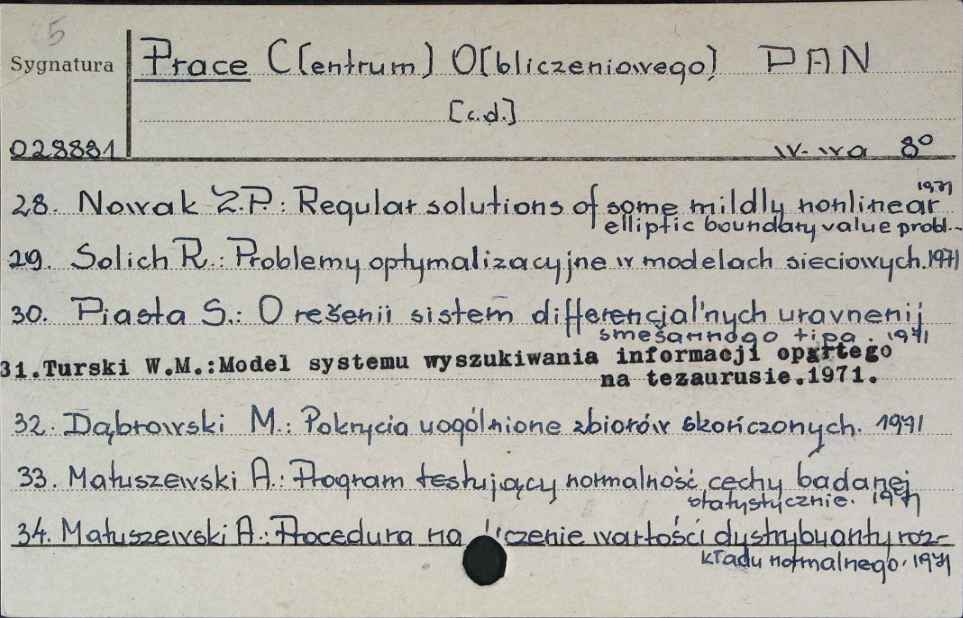 5
Sygnatura Prace C[entrum] O[bliczeniowego] PAN
[c.d.]
028881 W-wa 8°
28. Nowak Z.P.: Regular solutions of some mildly nonlinear 1971
elliptic boundary value probl...
29. Solich R.: Problemy optymalizacyjne w modelach sieciowych. 1971
30. Piasta S.: O rešenii sistem differencjal'nych uravnenij
smešannogo tipa. 1971
31.Turski W.M.:Model systemu wyszukiwania informacji opartego
na tezaurusie.1971.
32. Dąbrowski M.: Pokrycia uogólnione zbiorów skończonych. 1971
33. Matuszewski A.: Program testujący normalność cechy badanej
statystycznie. 1971
34. Matuszewski A.: Procedura na czenie wartości dystrybuanty roz-
kładu normalnego. 1971